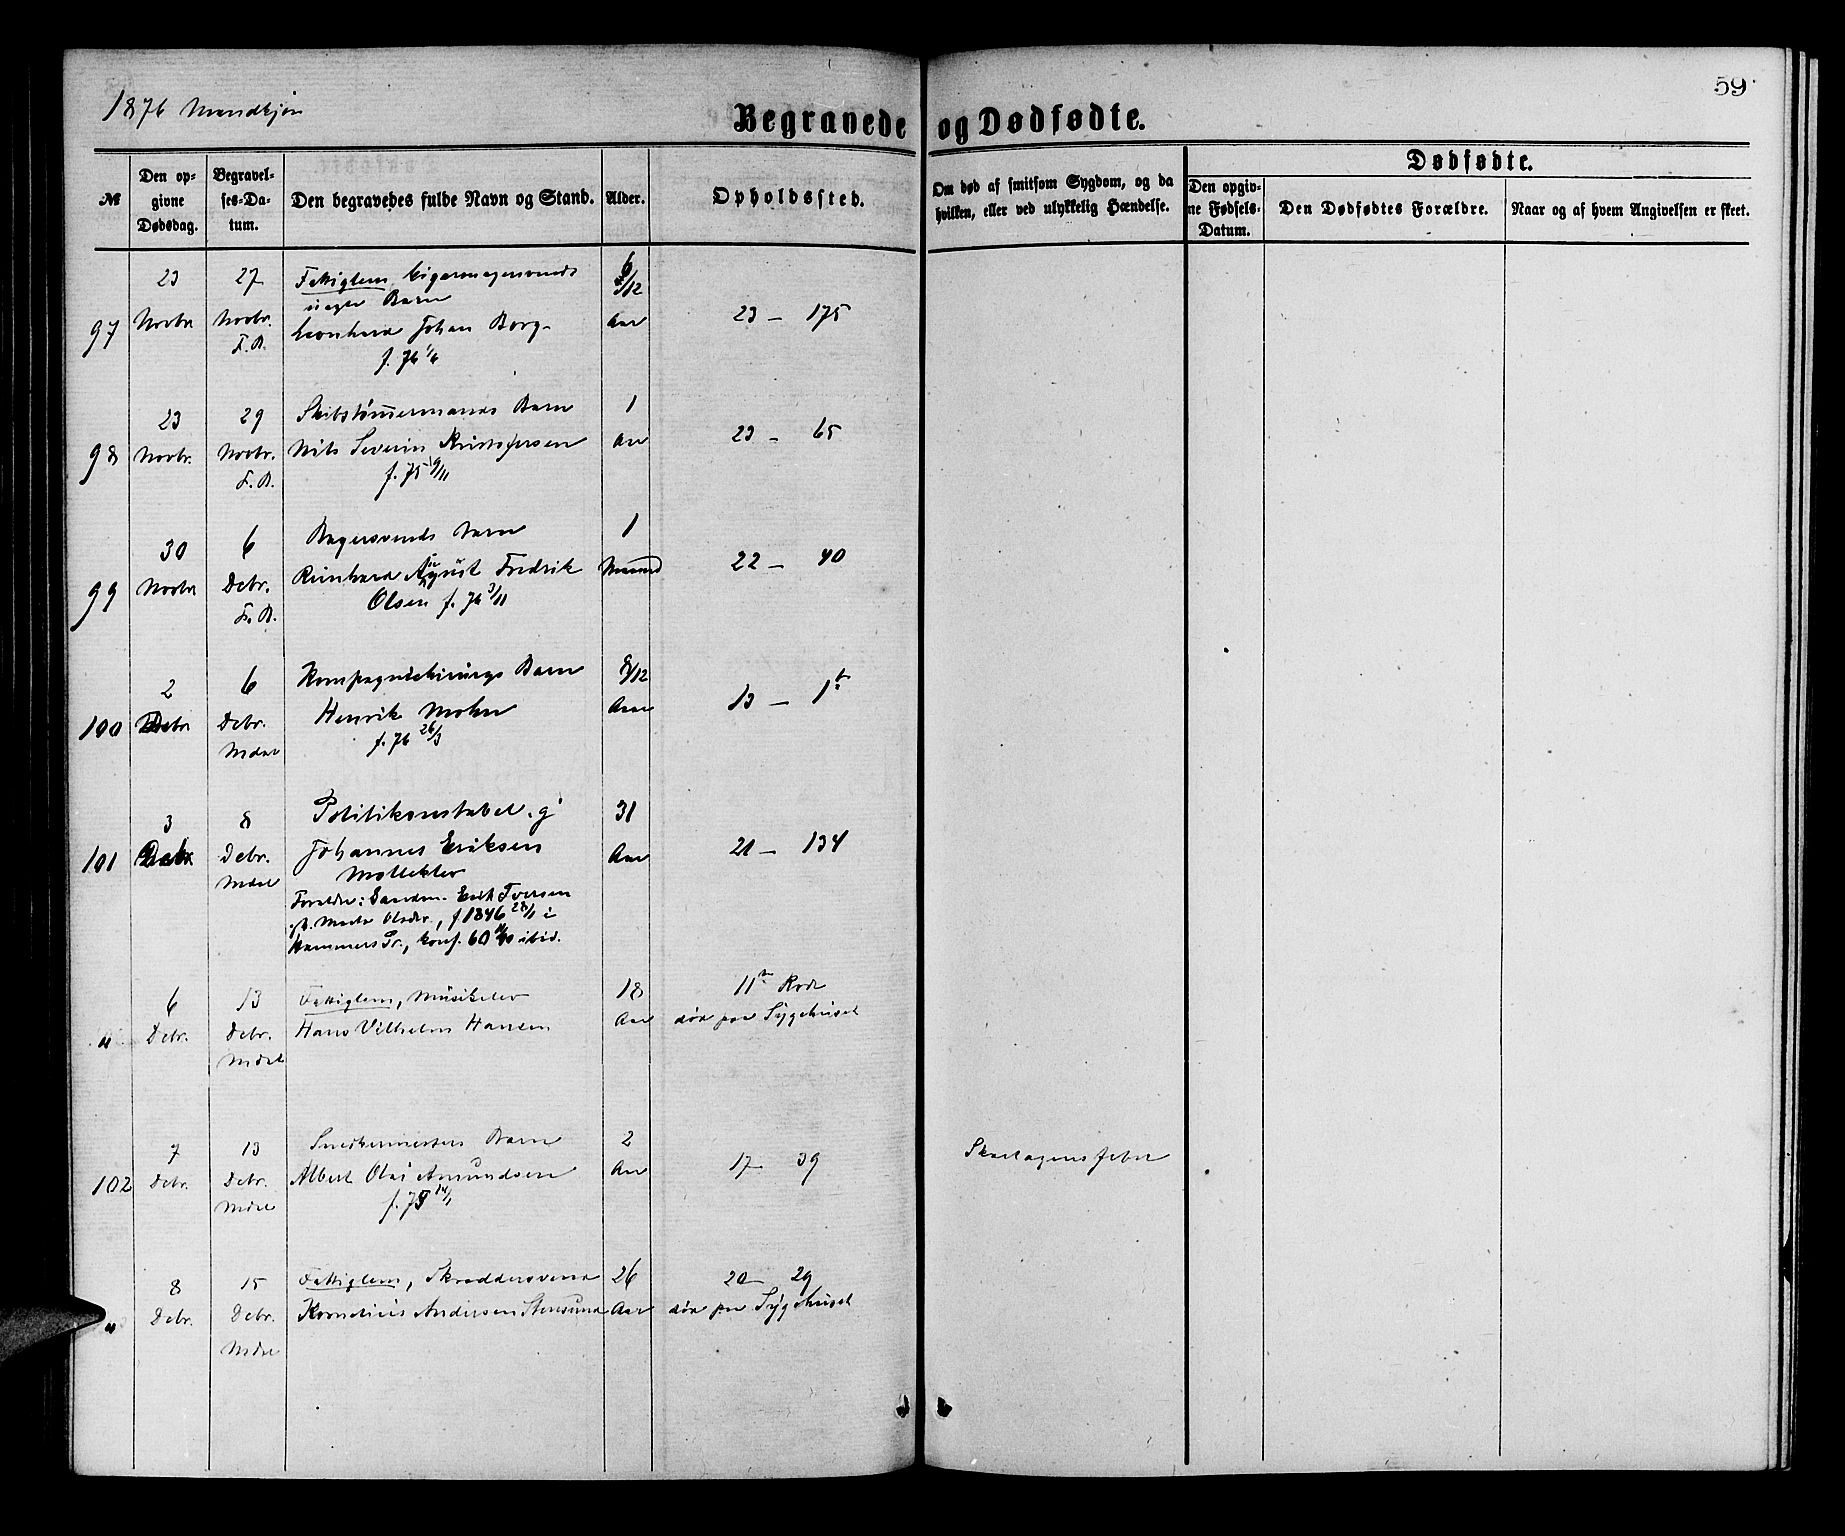 1876 Mandkjøn
59
Begravede og Dødfødte.
№
Den opgivne Dødsdag.
Begravelses-Datum.
Den begravedes fulde Navn og Stand.
Alder.
Opholdssted.
Om død af smitsom Sygdom, og da hvilken, eller ved ulykkelig Hændelse.
Dødfødte.
Den opgivne Fødsels-Datum.
Den Dødfødtes Forældre.
Naar og af hvem Angivelsen er skeet.
97
23 Novbr
27 Novbr. F. B.
Fattiglem, Cigarmagersvends
uægte Barn
Leonhard Johan Borg
f. 76 1/6
/12 Aar
23 — 175
98
23 Novbr.
29 Novbr. F. B.
Skibstømmermands Barn
Nils Severin Kristofersen
f. 75 19/11
1 Aar
23 — 65
99
30 Novbr
6 Debr. F. B.
Bagersvends Barn
Reinhard August Fredrik
Olsen f. 76 3/11
1 Maaned
22 — 40
100
2 Debr
6 Debr. Mdal
Kompagnichirurgs Barn
Henrik Mohn
f. 76 26/3
8/12 Aar
13 — 1
101
3 Debr
8 Debr. Mdal
Politikonstabel. g
Johannes Eriksen
Mølleklev
Forældre: Gaardm. Erik Iversen
og Marta Olsdr., f 1846 28/1 i
Hammers Pr., konf. 60 ibid.
31 Aar
21 — 134
"
6 Debr.
13 Debr. Mdal
Fattiglem, Musikelev
Hans Vilhelm Hansen
18 Aar
11te Rode
død paa Sygehuset
102
7 Debr.
13 Debr. Mdal
Snedkermesters Barn
Albert Olai Amundsen
f. 75 14/1
2 Aar
17 — 39
Skarlagensfeber
"
8 Debr.
15 Debr. Mdal
Fattiglem, Skræddersvend
Kornelius Andersen Stensund
26 Aar
20 — 29
død paa Sygehuset